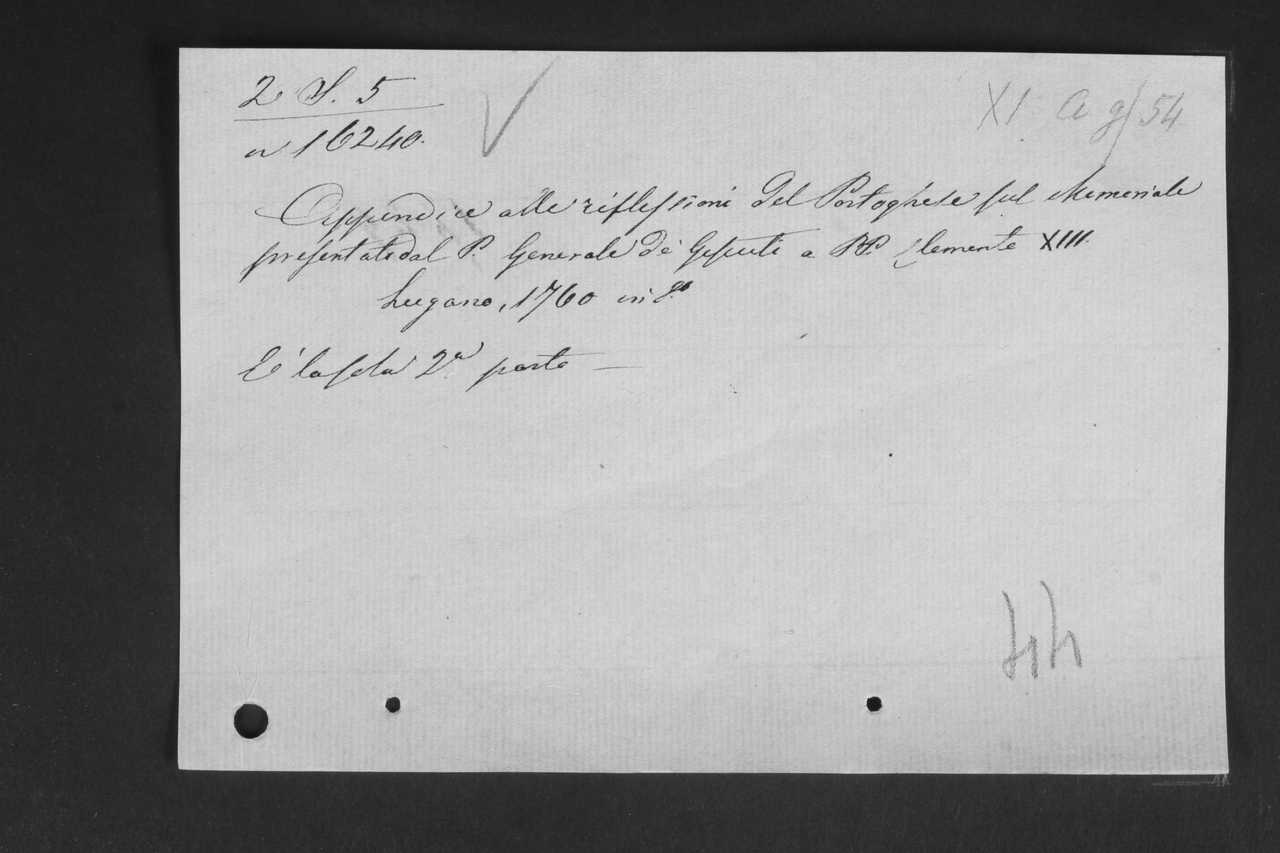 2 S. 5
XI a g/ 54
n 16240.
Appendice alle riflessioni del Portoghese sul Memoriale
presentato dal P. Generale de' Gesuiti a PP. Clemente XIII.
Lugano, 1760 in 8.o
E' la sola 2a parte —
44